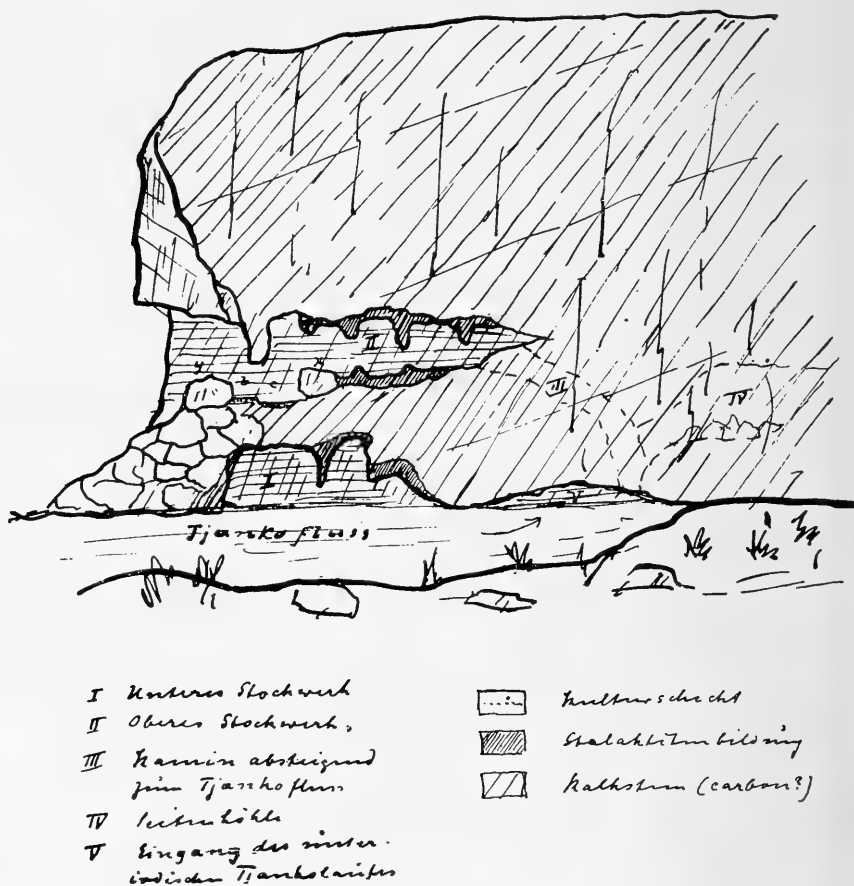 II
y
b
c
x
III
IV
I
V
Tjankofluss
I Unteres Stockwerk
II Oberes Stockwerk.
III Kamin absteigend
zum Tjankofluss
IV Seitenhöhle
V Eingang des unter-
irdischen Tjankolaufes
Kulturschicht
Stalaktitenbildung
Kalkstein (carbon?)